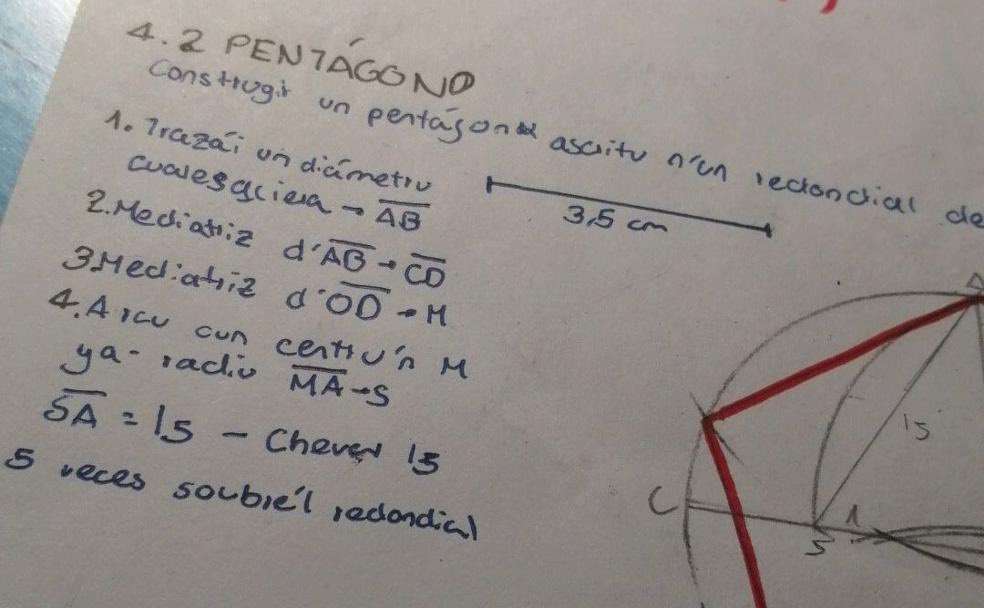 4.2 PENTÁGONO
Construgir un pentágonu ascritu n'un redondial de
3,5 cm
1. Trazái un diámetru
cualesquiera → AB
2. Mediatriz d'AB → CD
3. Mediatriz d'OD → M
4. Arcu cun centru'n M
ya radiu MA → S
SA = l5 - Chevar l5
5 veces soubre'l redondial
A
l5
C
S
1